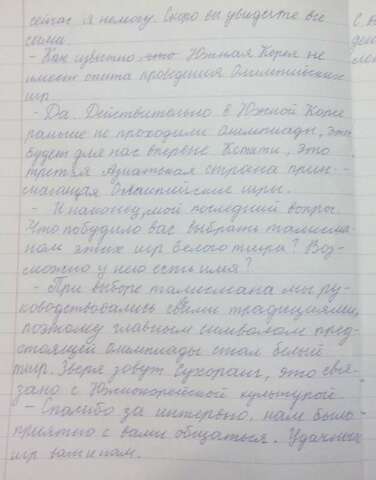 сейчас я немогу. Скоро вы увидете все
сами.
- Как известно что Южная Корея не
имеет опыта проведения Олимпийских
игр.
- Да. Действительно в Южной Корее
раньше не проходили олимпиады, это
будет для нас впервые. Кстати, это
третья Азиатская страна прин-
мающая Олимпийские игры.
- И наконец, мой последний вопрос.
Что побудило вас выбрать талисма-
ном этих игр белого тигра? Воз-
можно у него есть имя?
- При выборе талисмана мы ру-
ководствовались своими традициями,
поэтому главным символом пред-
стоящей олимпиады стал белый
тигр. Зверя зовут Сухоранг, это свя-
зано с Южнокорейской культурой.
- Спасибо за интервью, нам было
приятно с вами общаться. Удачных
игр вашим.